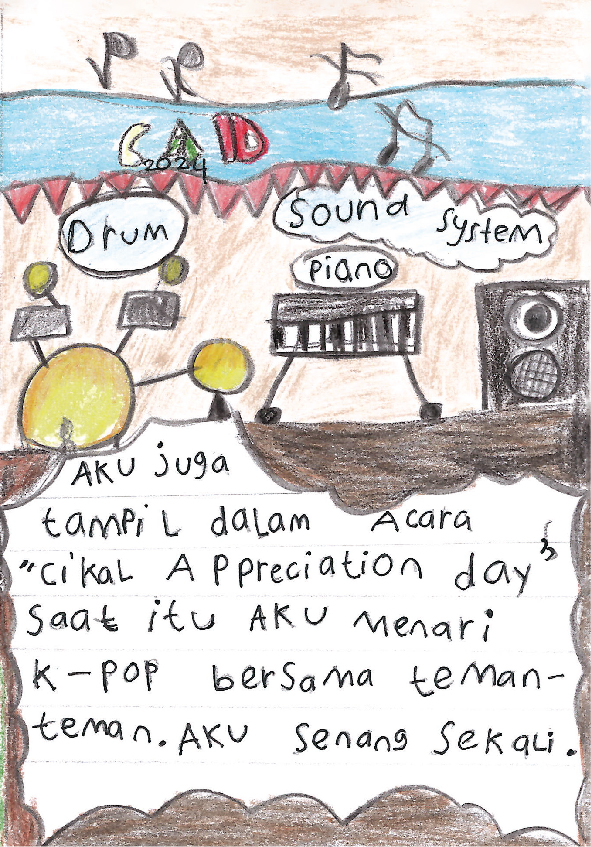 CAD
2024
Drum
Sound System
piano
AKU juga
tampil dalam Acara
"Cikal Appreciation day"
Saat itu AKU Menari
K-POP bersama teman-
teman. AKU senang sekali.